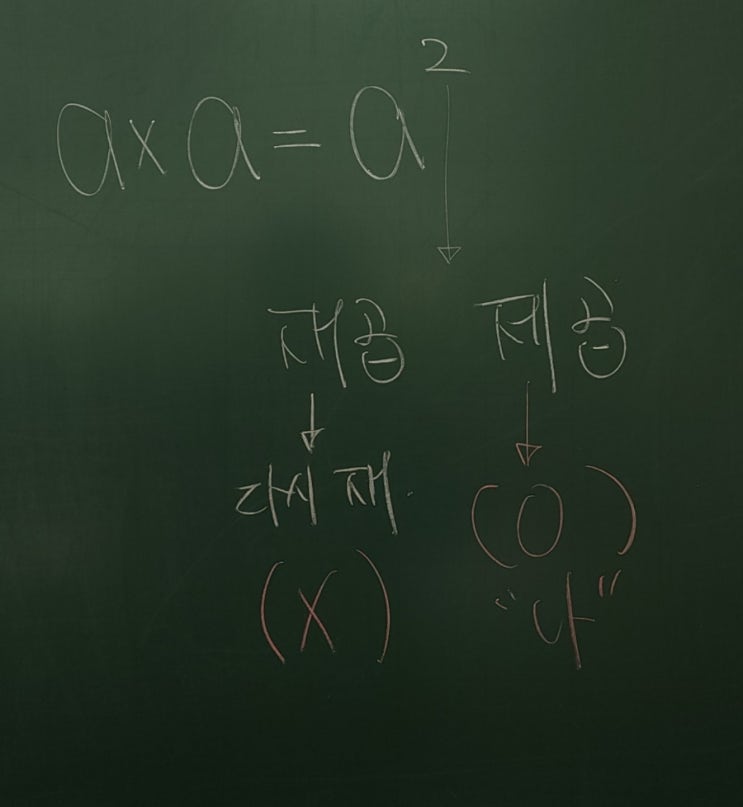 a × a = a²
재곱 제곱
다시 재.
(X) (O)
"나"